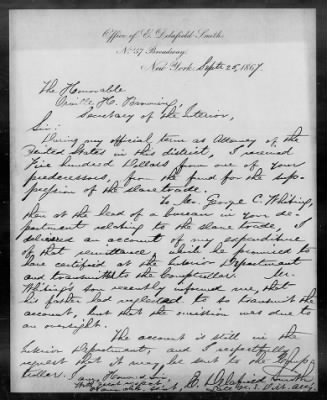 Office of E. Delafield Smith,
No. 37 Broadway,
New York, Sept. 25, 1867.
The Honorable
Orville H. Browning,
Secretary of the Interior,
Sir:
During my official term as Attorney of the
United States in this district, I received
Five Hundred Dollars from one of your
predecessors, from the fund for the sup-
pression of the slave trade.
To Mr. George C. Whiting,
then at the head of a bureau in your de-
partment relating to the slave trade, I
delivered an account of my expenditure
of that remittance, which he promised to
have certified at the Interior Department
and transmitted to the Comptroller. Mr.
Whiting's son recently informed me, that
his father had neglected to so transmit the
account, but that the omission was due to
an oversight.
The account is still in the
Interior Department, and I respectfully
request that it may be sent to the Comp-
troller.
I am, Honored Sir,
With great respect,
Your obt. Servt, E. Delafield Smith
late U. S. Dist. Atty.